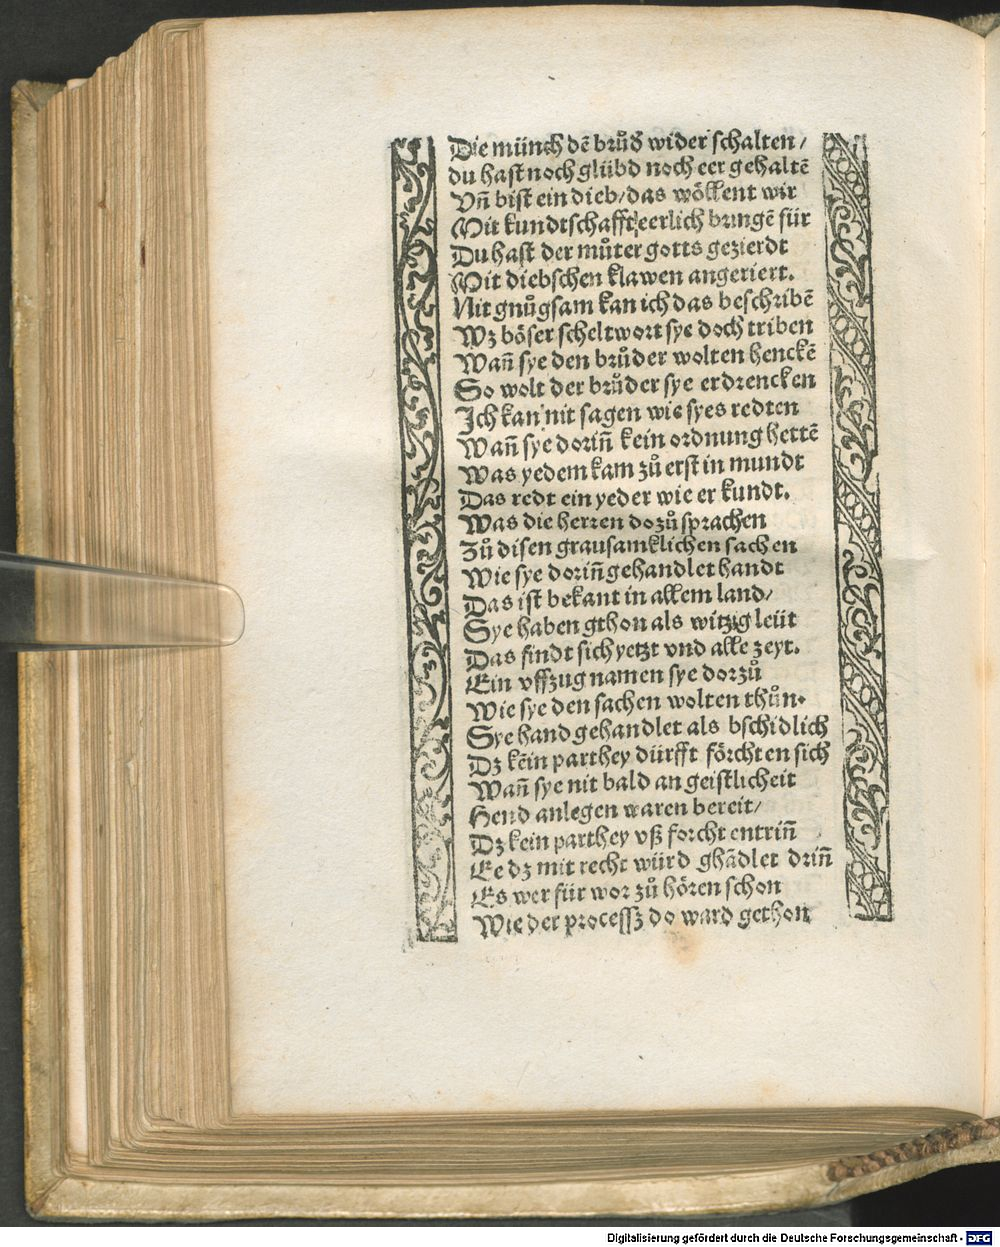 Die münch dē brůd wider schalten /
du hast noch glübd noch eer gehaltē
Vn̄ bist ein dieb / das wöllent wir
Mit kundtschafft eerlich bringē für
Du hast der můter gotts gezierdt
Mit diebschen klawen angeriert.
Nit gnůgsam kan ich das beschribē
Wz böser scheltwort sye doch triben
Wan̄ sye den brůder wolten henckē
So wolt der brůder sye erdrencken
Ich kan nit sagen wie syes redten
Wan̄ sye dorin̄ kein ordnung hettē
Was yedem kam zů erst in mundt
Das redt ein yeder wie er kundt.
Was die herren dozů sprachen
Zů disen grausamklichen sachen
Wie sye dorin̄ gehandlet handt
Das ist bekant in allem land /
Sye haben gthon als witzig leüt
Das findt sich yetzt vnd alle zeyt.
Ein vffzug namen sye dorzů
Wie sye den sachen wolten thůn.
Sye hand gehandlet als bschidlich
Dz kein parthey dürfft förchten sich
Wan̄ sye nit bald an geistlicheit
Hend anlegen waren bereit /
Dz kein parthey vß forcht entrin̄
Ee dz mit recht würd ghādlet drin̄
Es wer für wor zů hören schon
Wie der processz do ward gethon
Digitalisierung gefördert durch die Deutsche Forschungsgemeinschaft - DFG